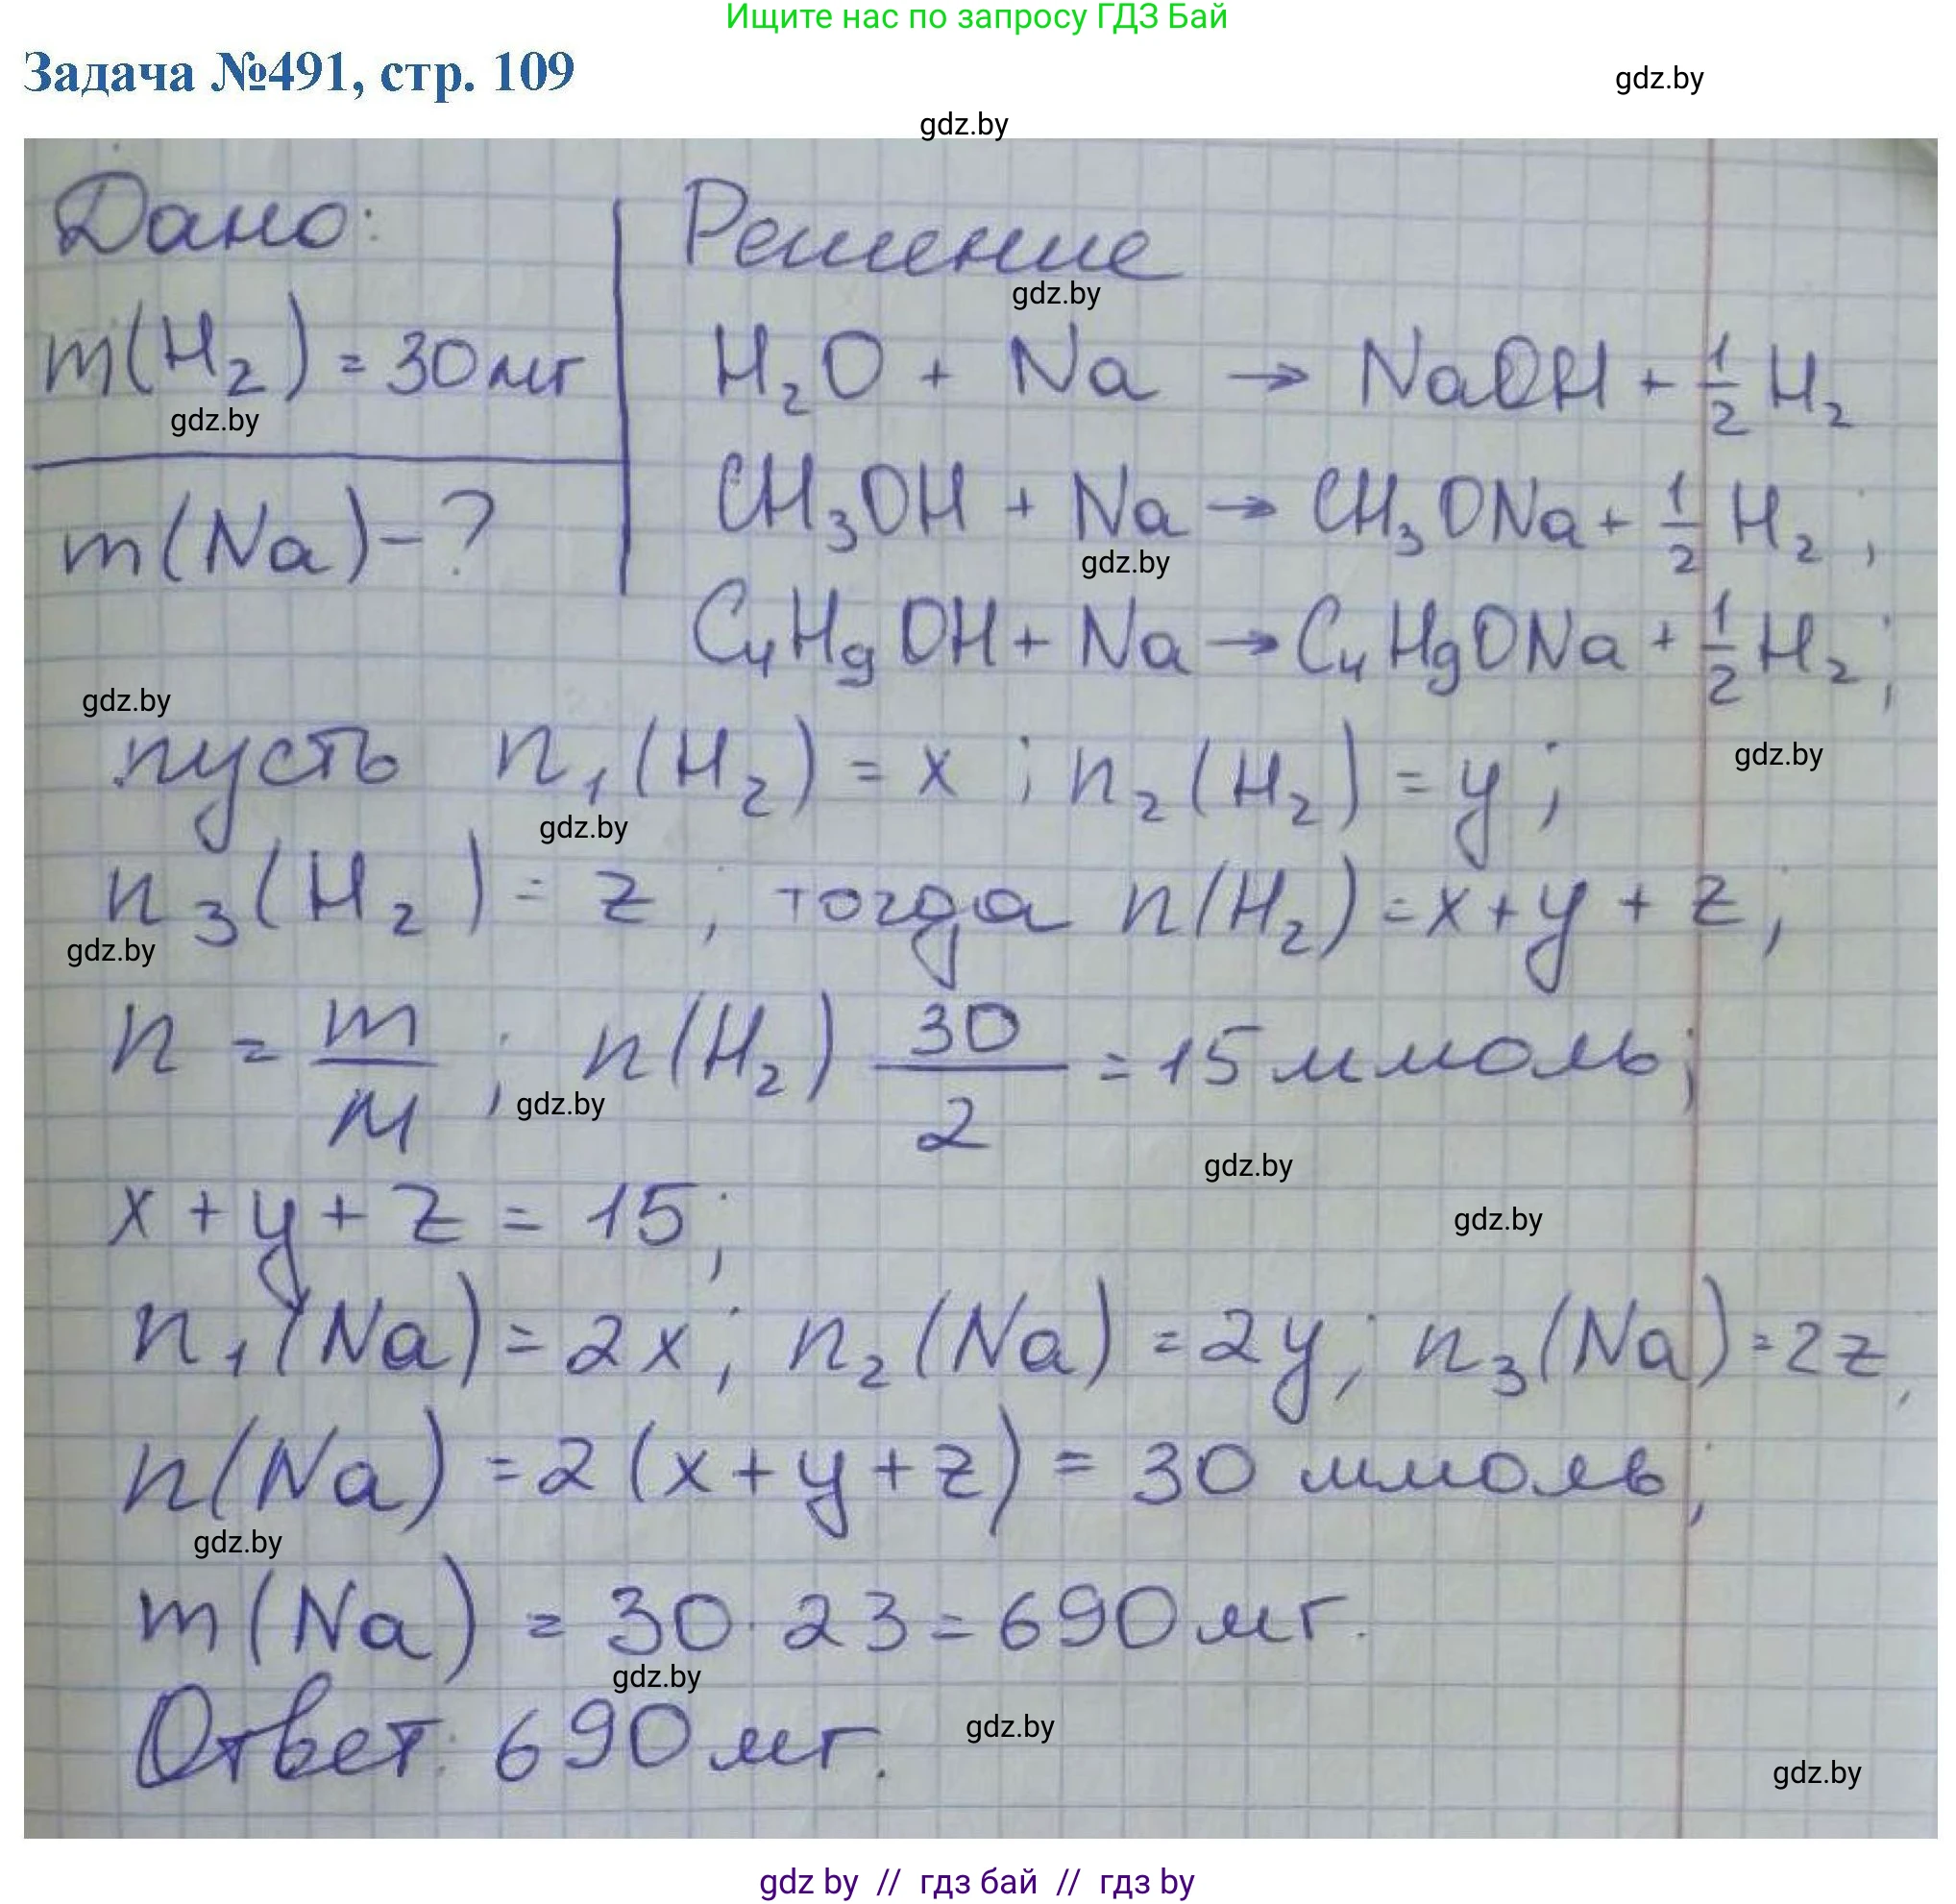 Ищите нас по запросу ГДЗ Бай
Задача №491, стр. 109
gdz.by
gdz.by
Дано:
Решение
gdz.by
m(H₂) = 30 мг
H₂O + Na → NaOH + 1/2 H₂
gdz.by
CH₃OH + Na → CH₃ONa + 1/2 H₂ ;
m(Na) - ?
gdz.by
C₄H₉OH + Na → C₄H₉ONa + 1/2 H₂ ;
gdz.by
пусть n₁(H₂) = x ; n₂(H₂) = y ;
gdz.by
gdz.by
n₃(H₂) = z ; тогда n(H₂) = x + y + z ;
gdz.by
n = m/M ; n(H₂) 30/2 = 15 ммоль ;
gdz.by
gdz.by
x + y + z = 15 ;
gdz.by
n₁(Na) = 2x ; n₂(Na) = 2y ; n₃(Na) = 2z ;
n(Na) = 2(x + y + z) = 30 ммоль ;
gdz.by
m(Na) = 30 · 23 = 690 мг.
gdz.by
Ответ: 690 мг.
gdz.by
gdz.by
gdz by // гдз бай // гдз by